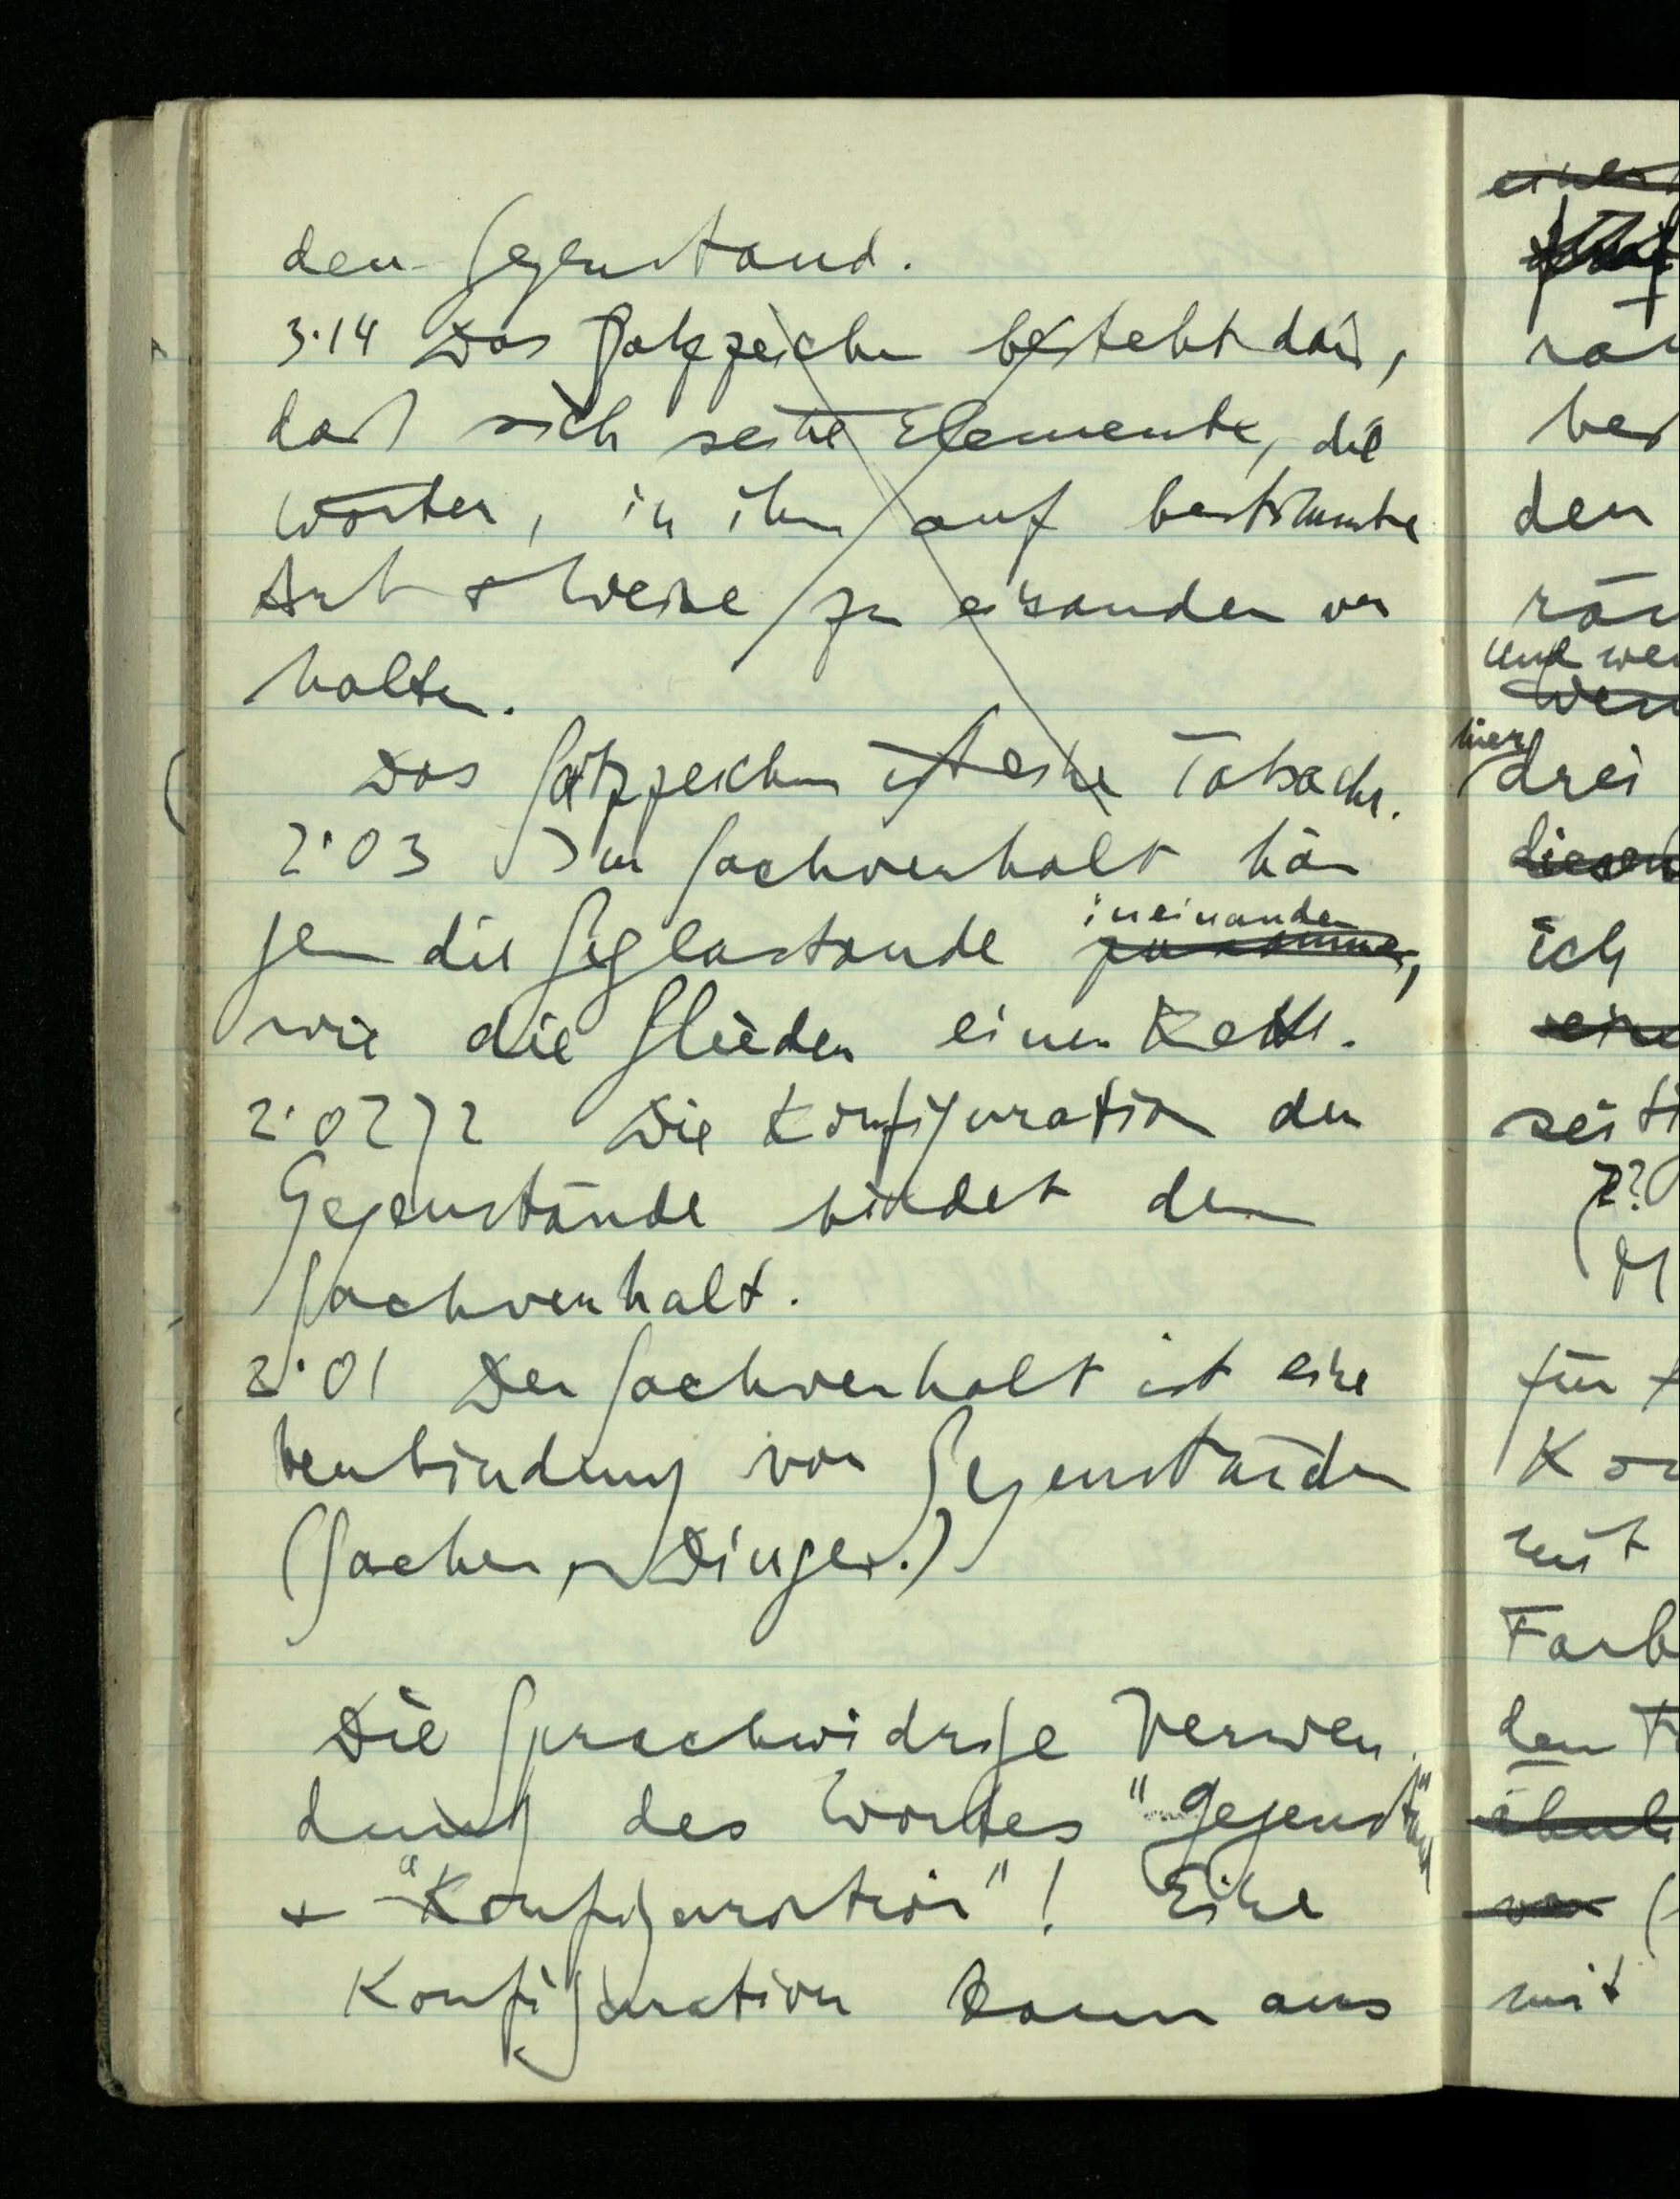 den Gegenstand.
3·14 Das Satzzeichen besteht darin,
daß sich seine Elemente, die
Wörter, in ihm auf bestimmte
Art & Weise zu einander ver
halten.
Das Satzzeichen ist eine Tatsache.
2·03 Im Sachverhalt hän
gen die Gegenstände ineinander zusammen,
wie die Glieder einer Kette.
2·0272 Die Konfiguration der
Gegenstände bildet den
Sachverhalt.
2·01 Der Sachverhalt ist eine
Verbindung von Gegenständen
(Sachen, Dingen.)
Die Sprachwidrige Verwen
dung des Wortes "Gegenstand"
& "Konfiguration"! Eine
Konfiguration kann aus
den
und
hier
drei
diesen
ich
für
mit
den
mit